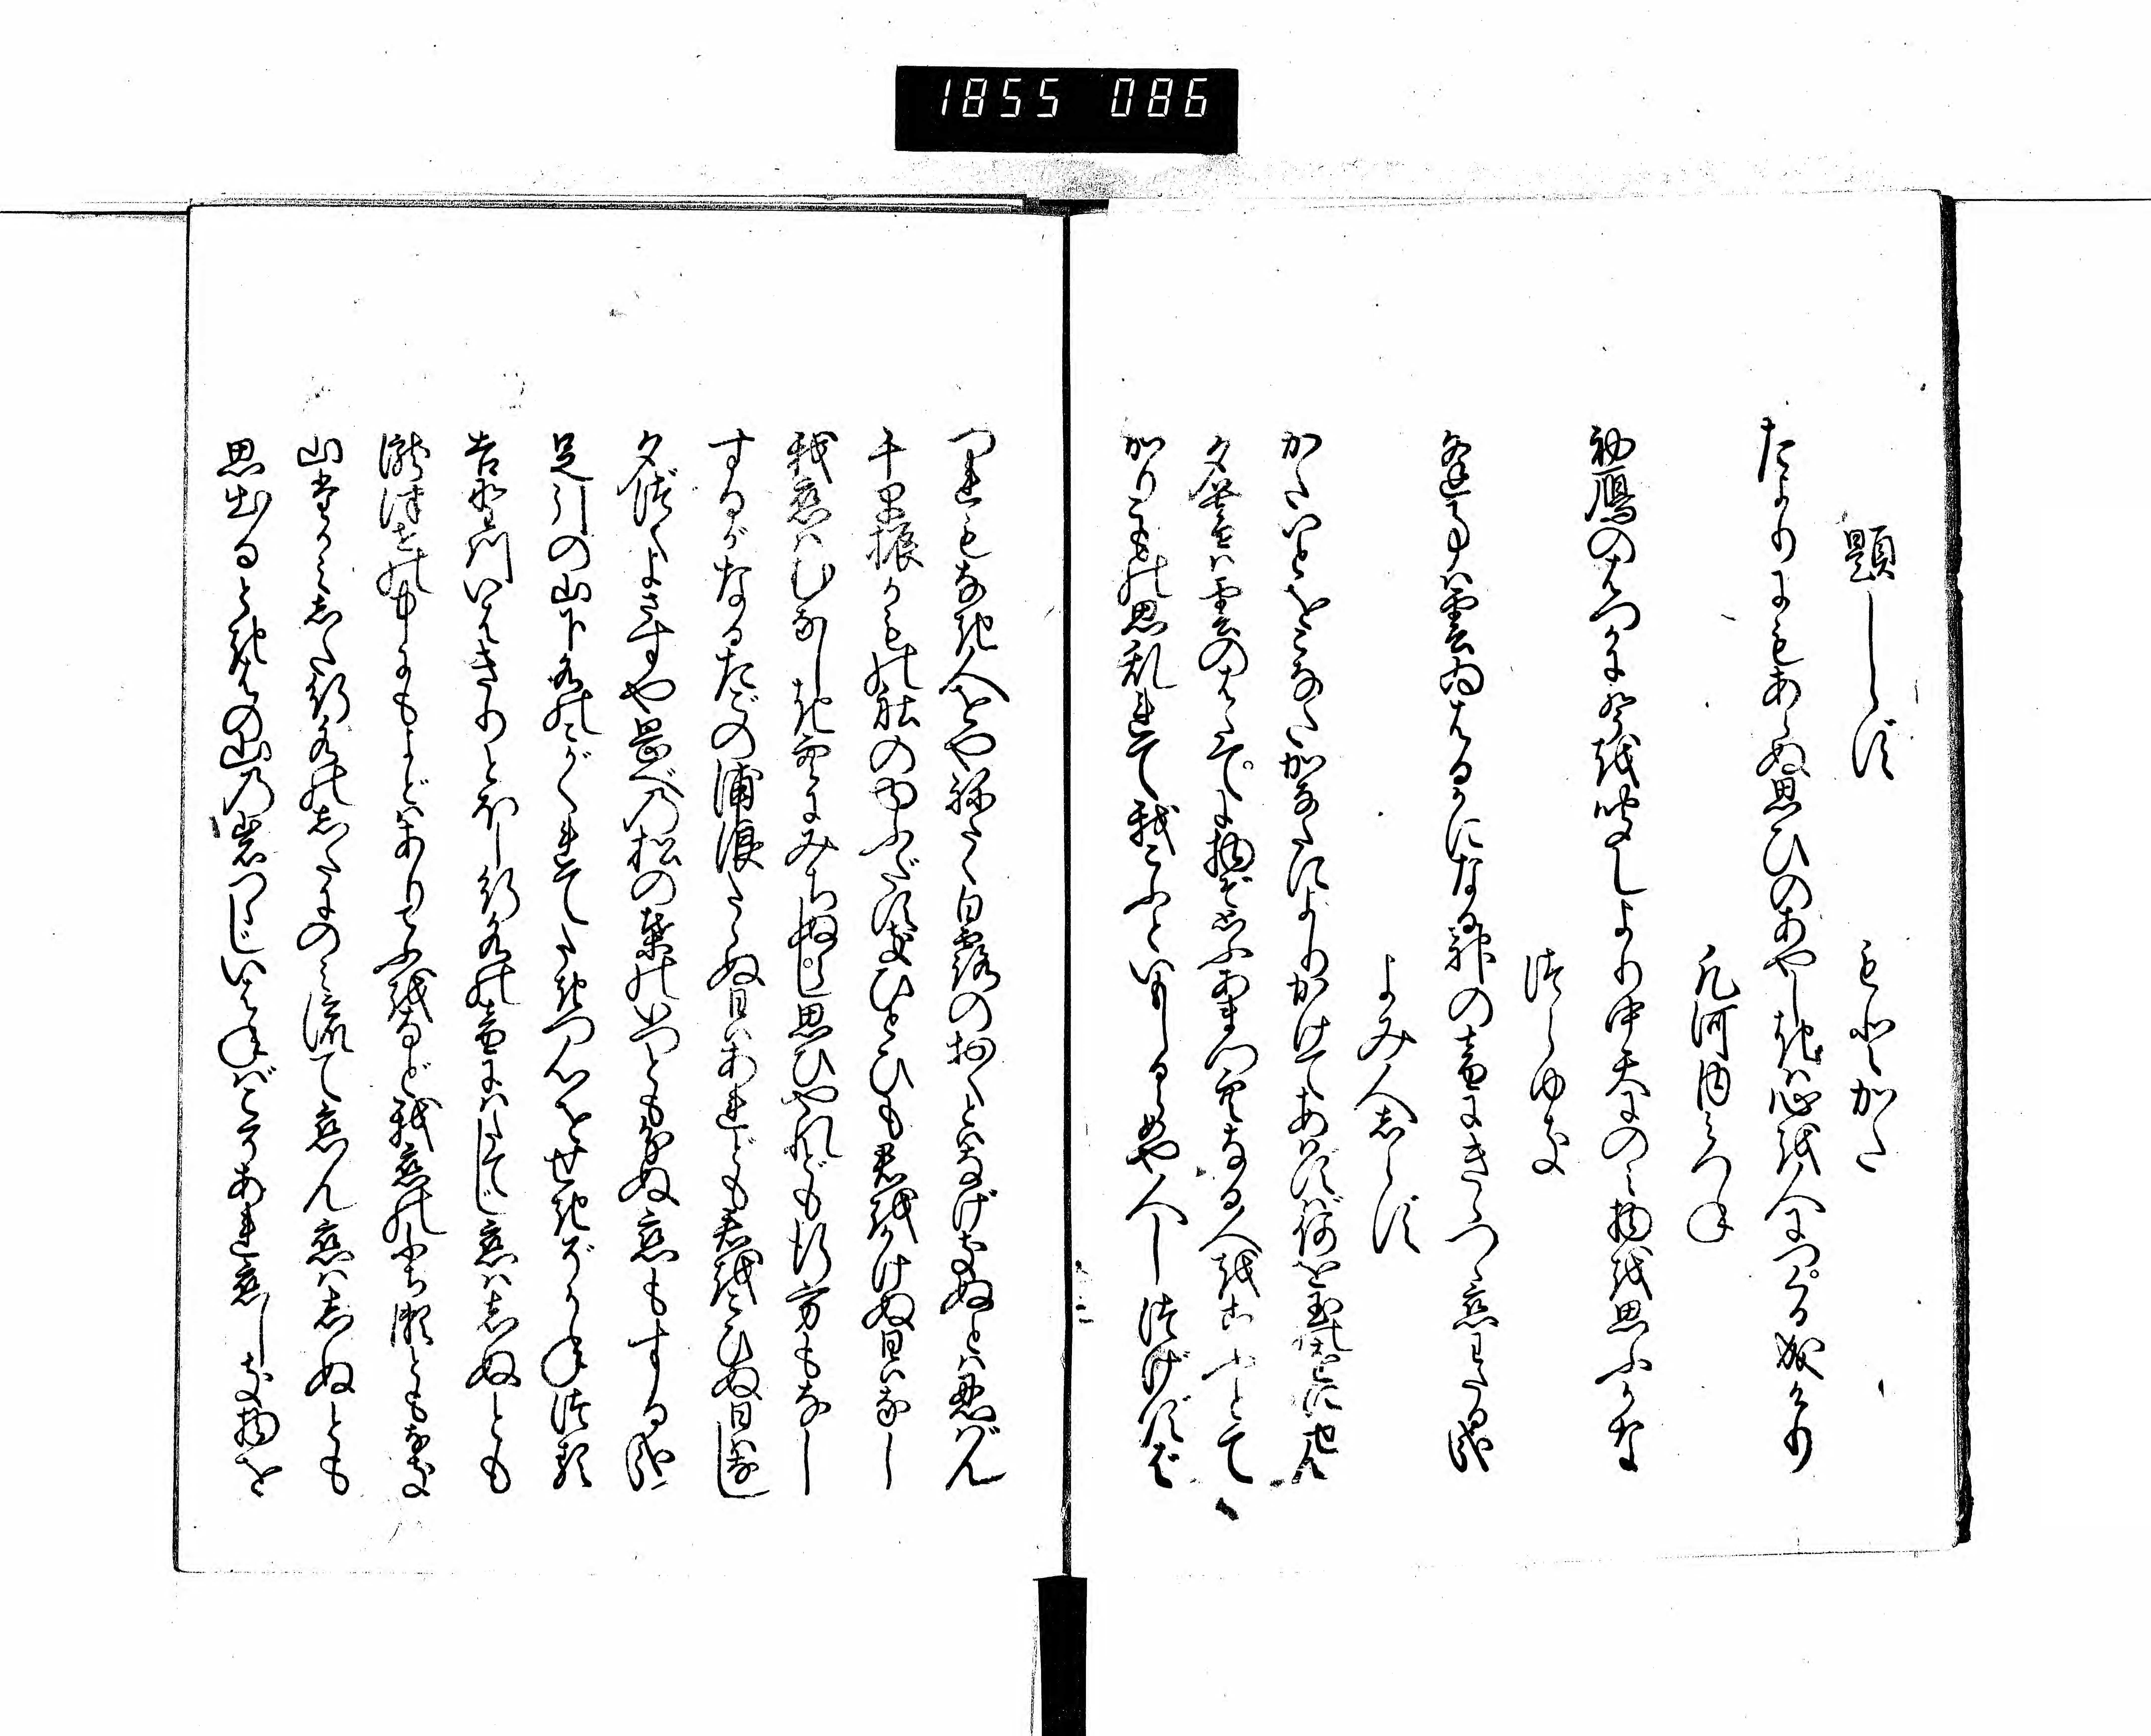 1855 086
題しらず
もとかた
たよりにもあらぬ思ひのあやしきは心を人につくる成けり
凡河内みつね
初鴈のはつかに聲を聞しより中天にのみ物を思ふかな
つらゆき
逢事は雲ゐはるかになる神の音にきゝつゝ恋わたる哉
よみ人しらず
かたいとをこなたかなたによりかけてあはずば何を玉の緒にせん
夕暮は雲のはたてに物ぞ思ふあまつ空なる人をこふとて
かりこもの思乱れて我こふといもしるらめや人しつげずば
つれもなき人をやねたく白露のおくとはなげきぬとは忍ばん
千早振かもの社のゆふだすきひとひも君をかけぬ日はなし
我恋はむなしき空にみちぬらし思ひやれども行方もなし
するがなるたごの浦浪たゝぬ日はあれども君をこひぬ日はなし
夕附くよさすや岡べの松の葉のいつともわかぬ恋もする哉
足引の山下水のこがくれてたきつ心をせきぞかねつる
吉野川いはきりとほし行水の音にはたてじ恋はしぬとも
瀧津せの中にもよどはありてふをなど我恋のふち瀬ともなき
山高みした行水のしたにのみ流て恋ん恋はしぬとも
思出るときはの山乃岩つゝじいはねばこそあれ恋しき物を